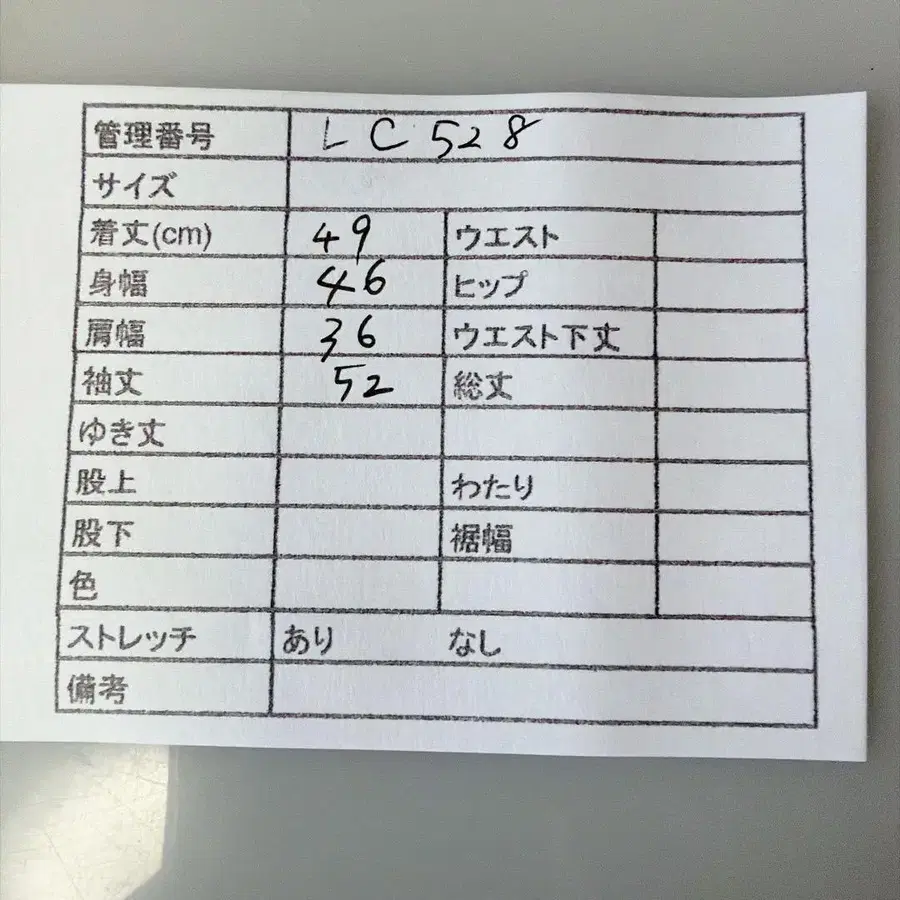 管理番号 LC528
サイズ
着丈(cm) 49 ウエスト
身幅 46 ヒップ
肩幅 36 ウエスト下丈
袖丈 52 総丈
ゆき丈
股上 わたり
股下 裾幅
色
ストレッチ あり なし
備考